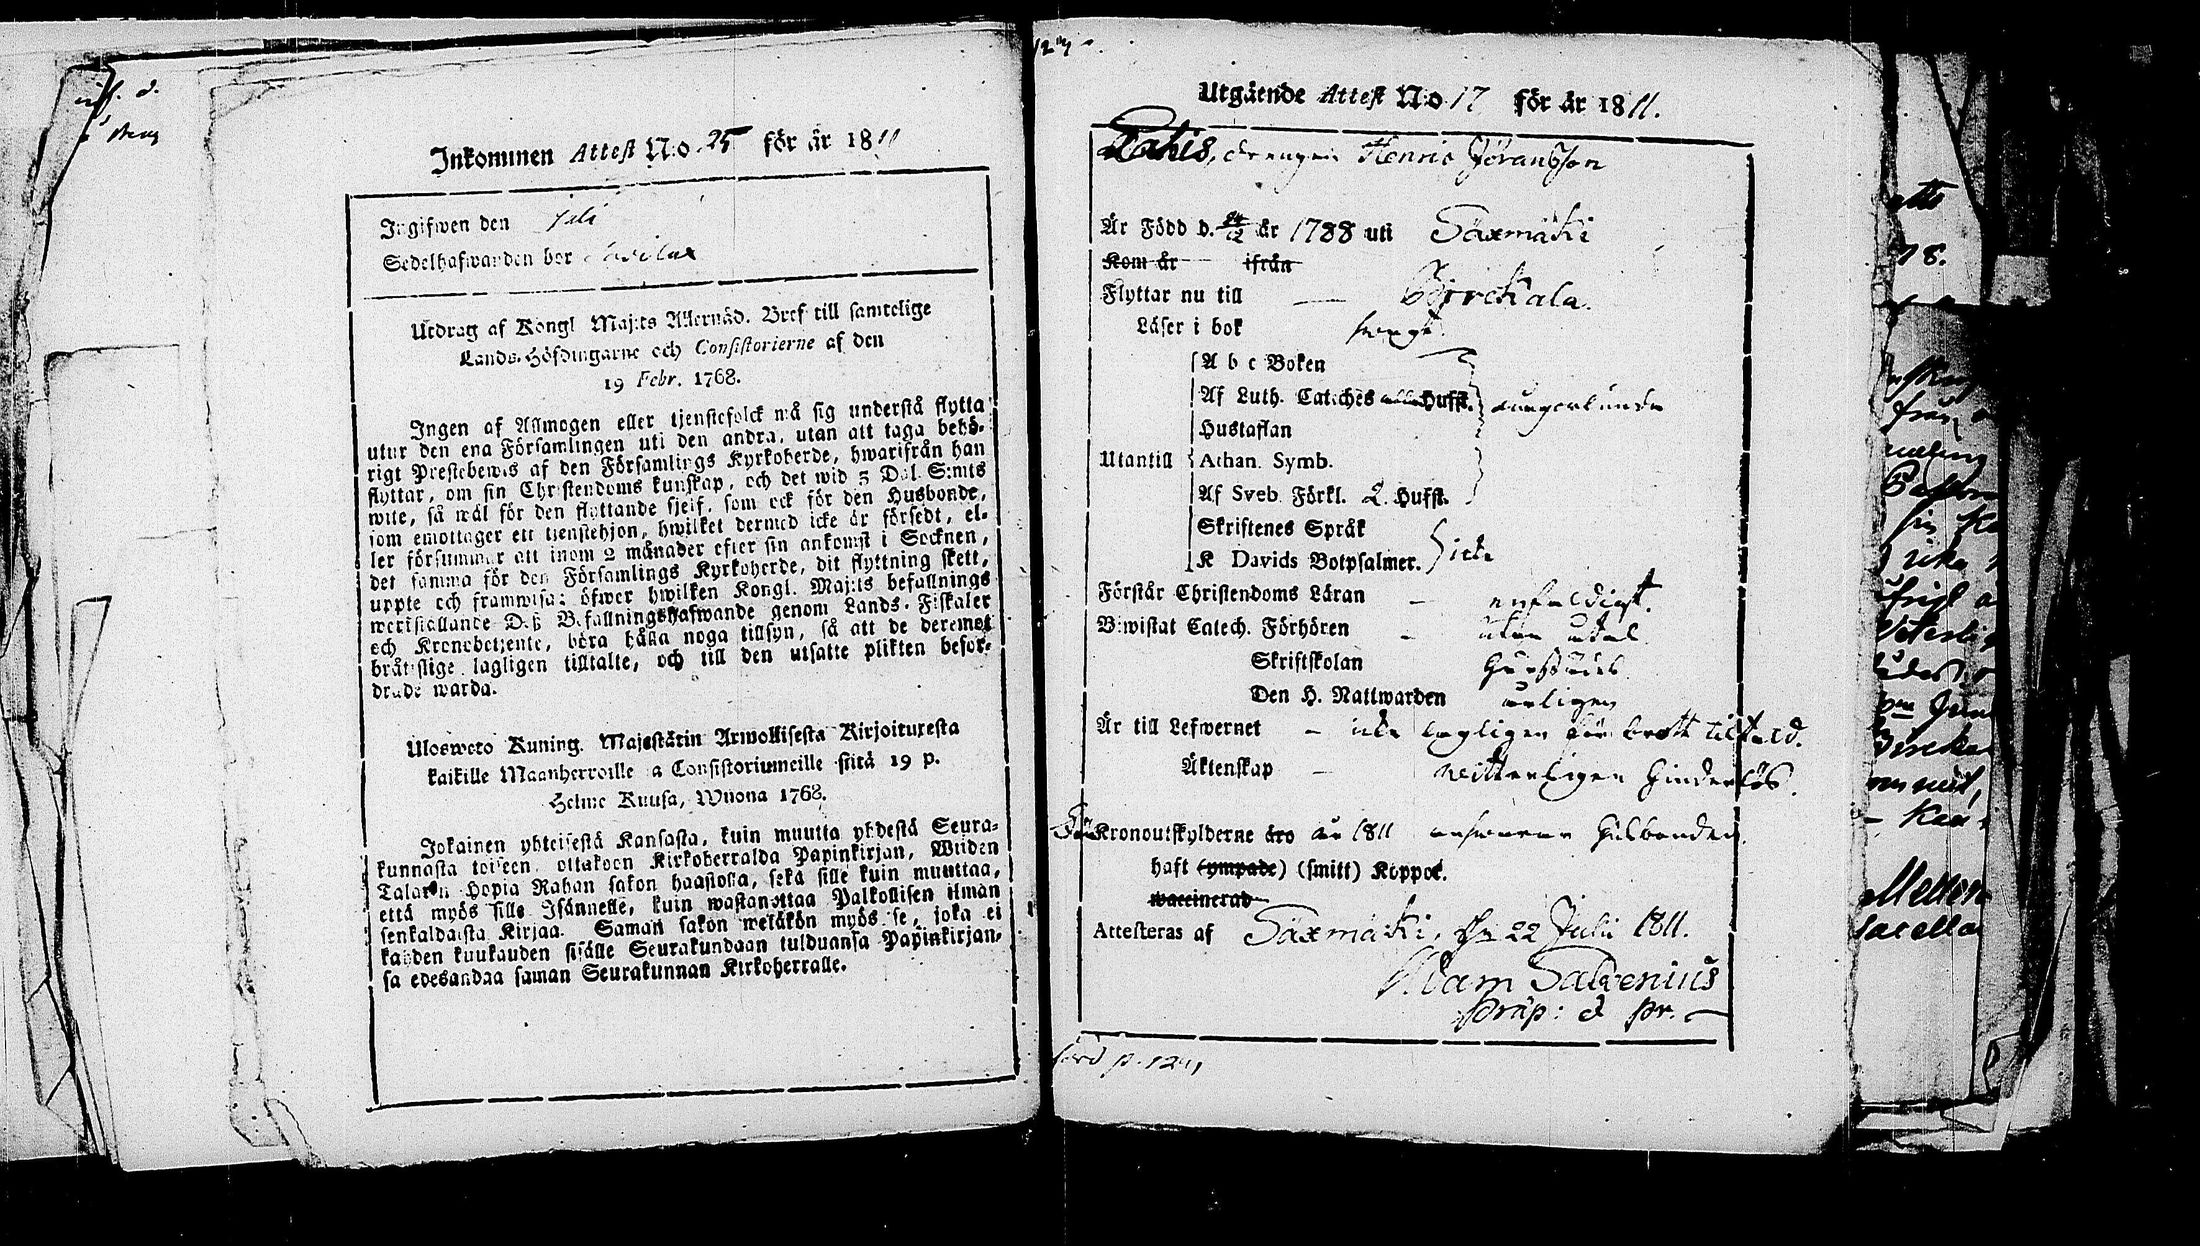 Inkommen Attest N:o 25 för år 1811
Ingifwen den Juli
Sedelhafwanden bor
Utdrag af Kongl Maj:ts Allernåd. Bref till samtelige
Lands-Höfdingarne och Consistorierne af den
19 Febr. 1768.
Ingen af Allmogen eller tjenstefolck må sig understå flytta
utur den ena Församlingen uti den andra, utan att taga behö-
rigt Prestebewis af den Församlings Kyrkoherde, hwarifrån han
flyttar, om sin Christendoms kunskap, och det wid 5 Dal. S:mts
wite, så wäl för den flyttande sjelf, som ock för den Husbonde,
som emottager ett tjenstehjon, hwilket dermed icke är försedt, el-
ler försummar att inom 2 månader efter sin ankomst i Socknen,
det samma för den Församlings Kyrkoherde, dit flyttning skett,
uppte och framwisa; öfwer hwilken Kongl. Maj:ts befallnings
werkställande Deß Befallningshafwande genom Lands-Fiskaler
och Kronobetjente, böra hålla noga tillsyn, så att de deremot
bråtslige lagligen tilltalte, och till den utsatte plikten befor-
drade warda.
Ulosweto Kuning. Majestätin Armollisesta Kirjoituxesta
kaikille Maanherroille ja Consistoriumeille siitä 19 p.
Helme Kuusa, Wuona 1768.
Jokainen yhteisestä Kansasta, kuin muutta yhdestä Seura-
kunnasta toiseen, ottakoon Kirkoherralda Papinkirjan, Wiiden
Talarin Hopia Rahan sakon haastolla, sekä sille kuin muuttaa,
että myös sille Isännelle, kuin wastanottaa Palkollisen ilman
senkaldaista Kirjaa. Saman sakon weläkön myös se, joka ei
kahden kuukauden sisälle Seurakundaan tulduansa Papinkirjan-
sa edesandaa saman Seurakunnan Kirkoherralle.
Utgående Attest N:o 17 för år 1811.
drengen Henric Jöransson
Är Född d. 24/12 år 1788 uti Säxmäki
Kom år ifrån
Flyttar nu till — Birckala.
Läser i bok swagt
A b c Boken
Af Luth. Cateches alla Hufst. någorlunda
Hustaflan
Utantill Athan. Symb.
Af Sveb. Förkl. 2 Hufst.
Skriftenes Språk
K Davids Botpsalmer. icke
Förstår Christendoms Läran — enfaldigt.
Biwistat Catech. Förhören —
Skriftskolan
Den H. Nattwarden årligen
Är till Lefwernet — icke lagligen för brott tilltald.
Äktenskap — witterligen hinderlös.
För Kronoutskylderne äro år 1811 answarar husbonden.
haft (ympade) (smitt) Koppor.
waccinerad
Attesteras af Säxmäki, d. 22 Julii 1811.
Adam Salvenius
Præp: & Pr.